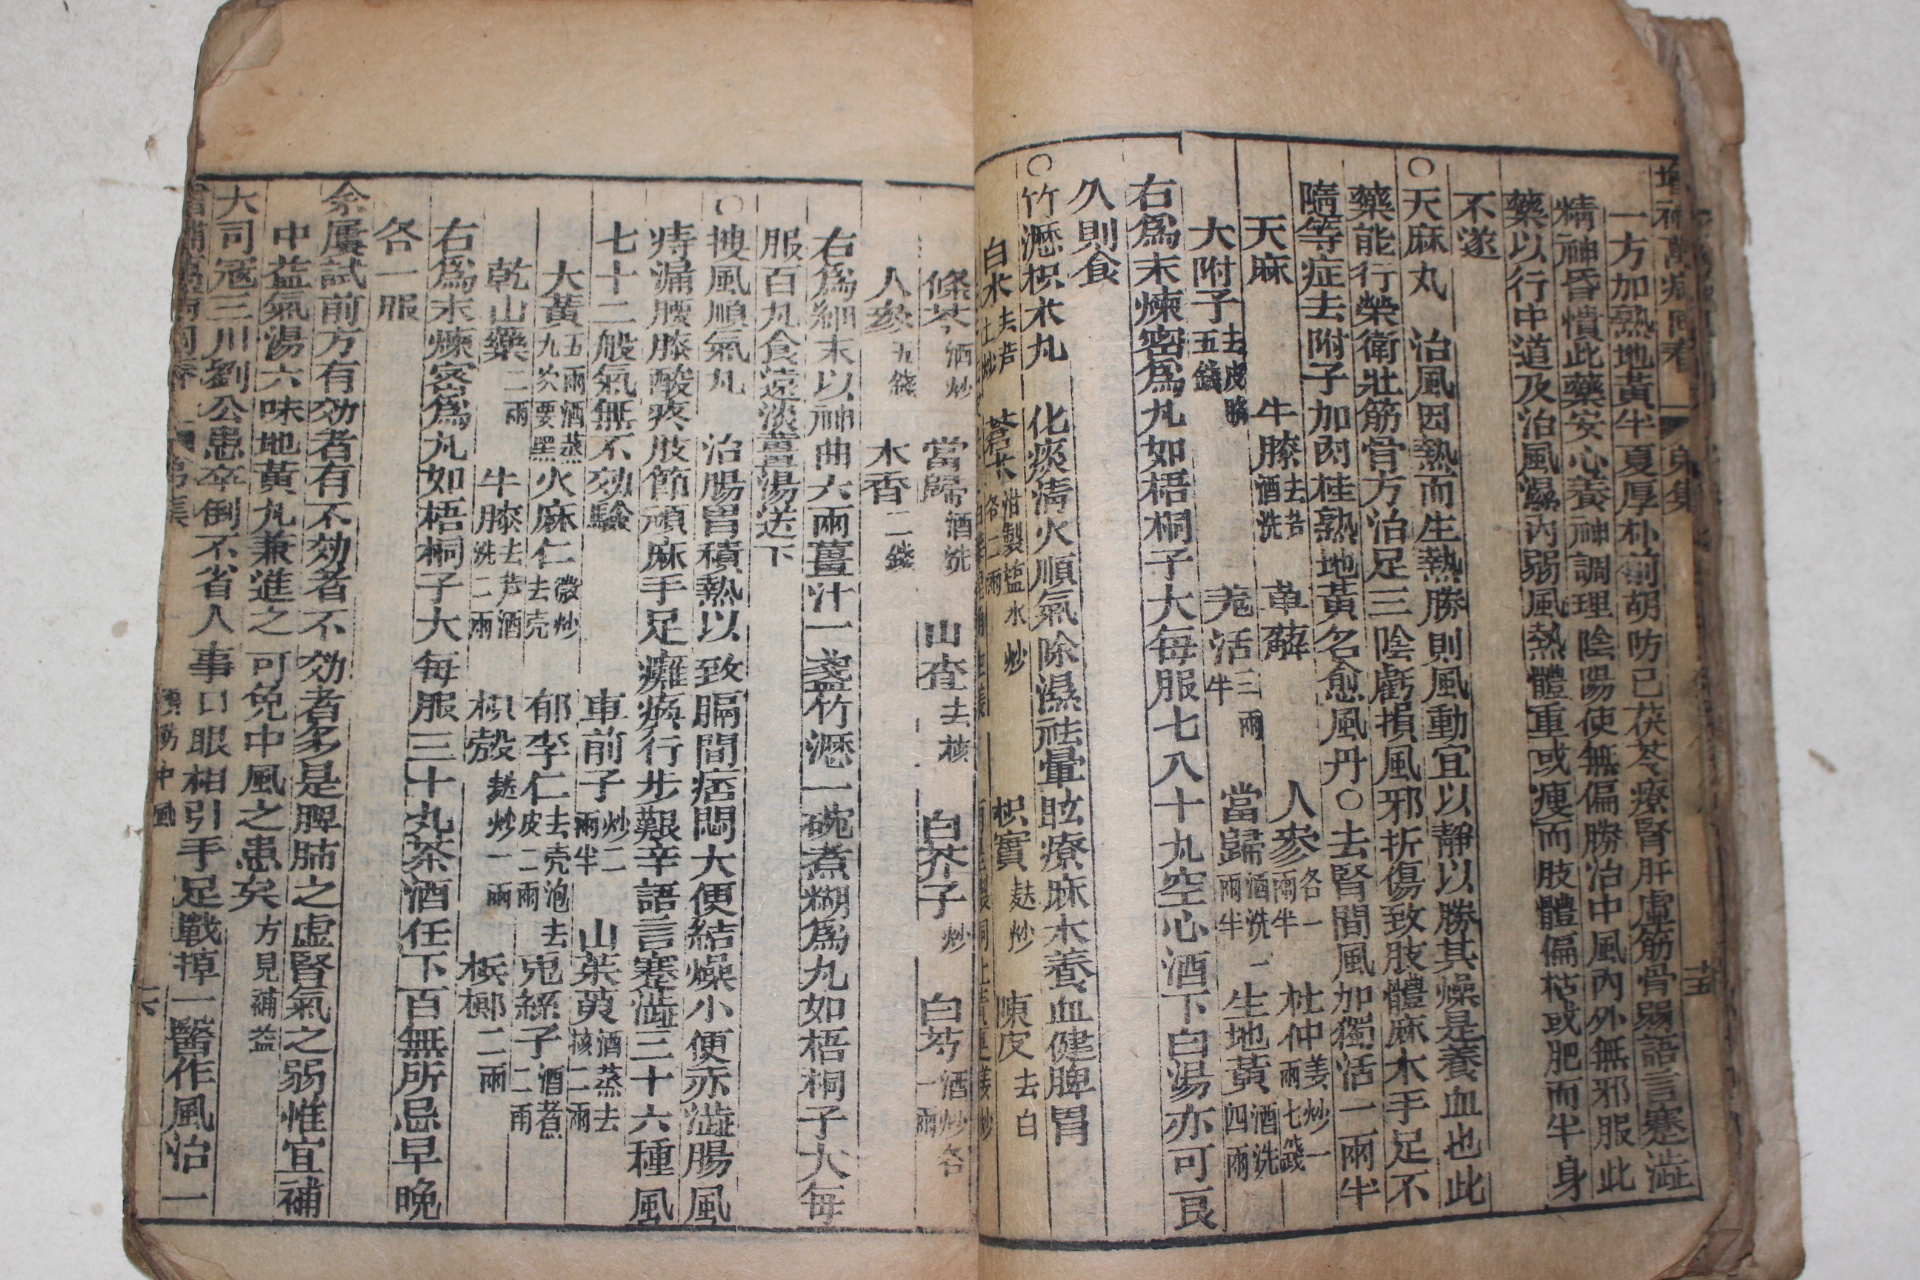 增補萬病回春 貞集
一方加熟地黃半夏厚朴前胡防己茯苓療腎肝虛筋骨弱語言蹇澁
精神昏憒此藥安心養神調理陰陽使無偏勝治中風內外無邪服此
藥以行中道及治風濕內弱風熱體重或瘦而肢體偏枯或肥而半身
不遂
○天麻丸 治風因熱而生熱勝則風動宜以靜以勝其燥是養血也此
藥能行榮衛壯筋骨方治足三陰虧損風邪折傷致肢體麻木手足不
隨等症去附子加肉桂熟地黃名愈風丹○去腎間風加獨活一兩半
天麻 牛膝去芦酒洗 萆薢 人參各一兩半 杜仲姜炒一兩七錢
大附子去皮臍五錢 羌活三兩半 當歸酒洗二兩半 生地黃酒洗四兩
右爲末煉密爲丸如梧桐子大每服七八十丸空心酒下白湯亦可良
久則食
○竹瀝枳朮丸 化痰淸火順氣除濕祛暈眩療麻木養血健脾胃
白朮去芦土炒 蒼朮泔製塩水炒各二兩 枳實麩炒 陳皮去白
條芩酒炒 當歸酒洗 山查去核 白芥子炒 白芍酒炒各一兩
人參五錢 木香二錢
右爲細末以神曲六兩薑汁一盞竹瀝一碗煮糊爲丸如梧桐子大每
服百丸食遠淡薑湯送下
○搜風順氣丸 治腸胃積熱以致膈間痞悶大便結燥小便赤澁腸風
痔漏腰膝酸疼肢節頑麻手足癱瘓行步艱辛語言蹇澁三十六種風
七十二般氣無不効驗 車前子炒二兩半 山茱萸酒蒸去核二兩
大黃五兩酒蒸九次要黑 火麻仁微炒去壳 郁李仁去壳泡去皮二兩 兎絲子酒煮二兩
乾山藥二兩 牛膝去芦酒洗二兩 枳殼麩炒一兩 梹榔二兩
右爲末煉密爲丸如梧桐子大每服三十丸茶酒任下百無所忌早晚
各一服
余屢試前方有効者有不効者不効者多是脾肺之虛腎氣之弱惟宜補
中益氣湯六味地黃丸兼進之可免中風之患矣方見補益
大司寇三川劉公患卒倒不省人事口眼相引手足戰掉一醫作風治一